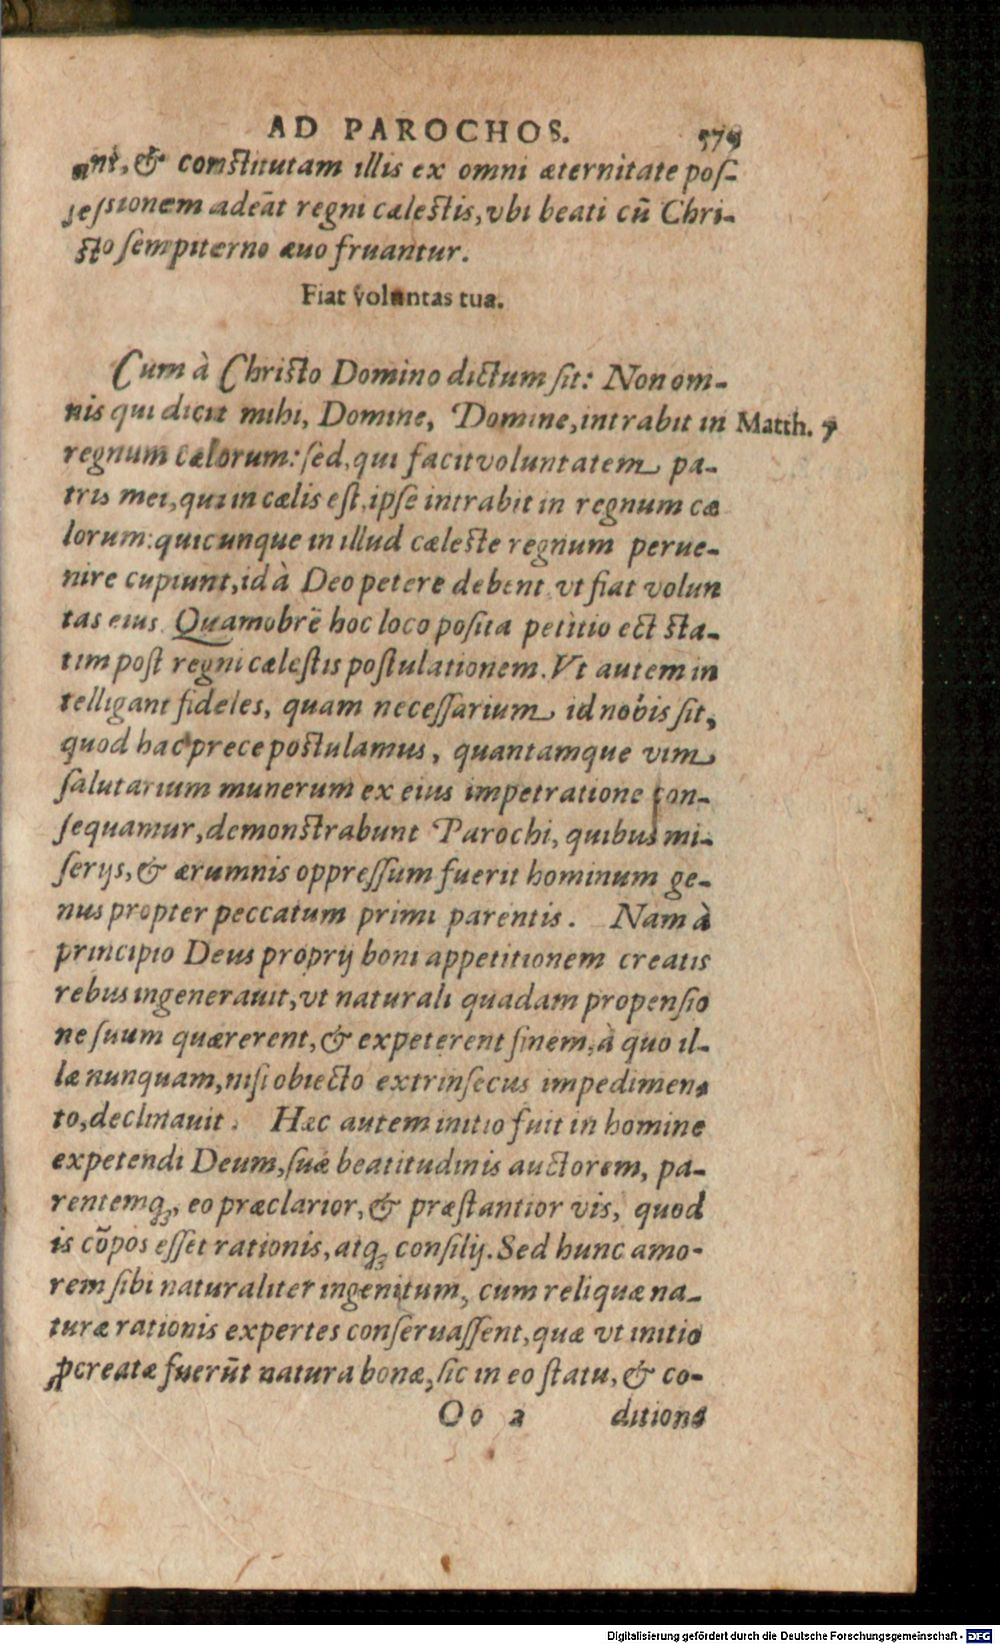 AD PAROCHOS. 579
ant, & constitutam illis ex omni æternitate pos-
sessionem adeāt regni cælestis, vbi beati cū Chri-
sto sempiterno æuo fruantur.
Fiat voluntas tua.
Cum à Christo Domino dictum sit: Non om-
nis qui dicit mihi, Domine, Domine, intrabit in Matth. 7
regnum cælorum: sed, qui facit voluntatem pa-
tris mei, qui in cælis est, ipse intrabit in regnum cæ
lorum: quicunque in illud cæleste regnum perue-
nire cupiunt, id à Deo petere debent, vt fiat volun
tas eius. Quamobrē hoc loco posita petitio est sta-
tim post regni cælestis postulationem. Vt autem in
telligant fideles, quam necessarium id nobis sit,
quod hac prece postulamus, quantamque vim
salutarium munerum ex eius impetratione con-
sequamur, demonstrabunt Parochi, quibus mi-
serijs, & ærumnis oppressum fuerit hominum ge-
nus propter peccatum primi parentis. Nam à
principio Deus proprij boni appetitionem creatis
rebus ingenerauit, vt naturali quadam propensio
ne suum quærerent, & expeterent finem, à quo il-
læ nunquam, nisi obiecto extrinsecus impedimen-
to, declinauit. Hæc autem initio fuit in homine
expetendi Deum, suæ beatitudinis auctorem, pa-
rentemq́;, eo præclarior, & præstantior vis, quod
is cōpos esset rationis, atq; consilij. Sed hunc amo-
rem sibi naturaliter ingenitum, cum reliquæ na-
turæ rationis expertes conseruassent, quæ vt initio
ꝓcreatæ fuerūt natura bonæ, sic in eo statu, & co-
Oo 2 ditione